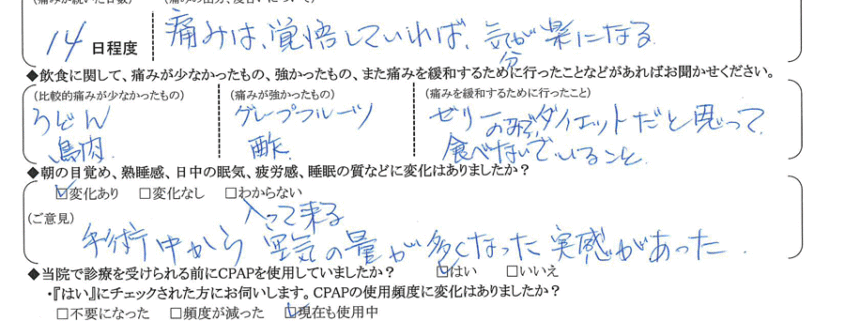 (痛みが続いた日数)
14 日程度
痛みは、覚悟していれば、気分が楽になる
◆飲食に関して、痛みが少なかったもの、強かったもの、また痛みを緩和するために行ったことなどがあればお聞かせください。
(比較的痛みが少なかったもの) (痛みが強かったもの) (痛みを緩和するために行ったこと)
うどん グレープフルーツ ゼリーのみで、ダイエットだと思って、
鳥肉 酢 食べないでいること。
◆朝の目覚め、熟睡感、日中の眠気、疲労感、睡眠の質などに変化はありましたか?
☑変化あり □変化なし □わからない
(ご意見)
手術中から 入って来る 空気の量が多くなった実感があった。
◆当院で診療を受けられる前にCPAPを使用していましたか? ☑はい □いいえ
・『はい』にチェックされた方にお伺いします。CPAPの使用頻度に変化はありましたか?
□不要になった □頻度が減った ☑現在も使用中